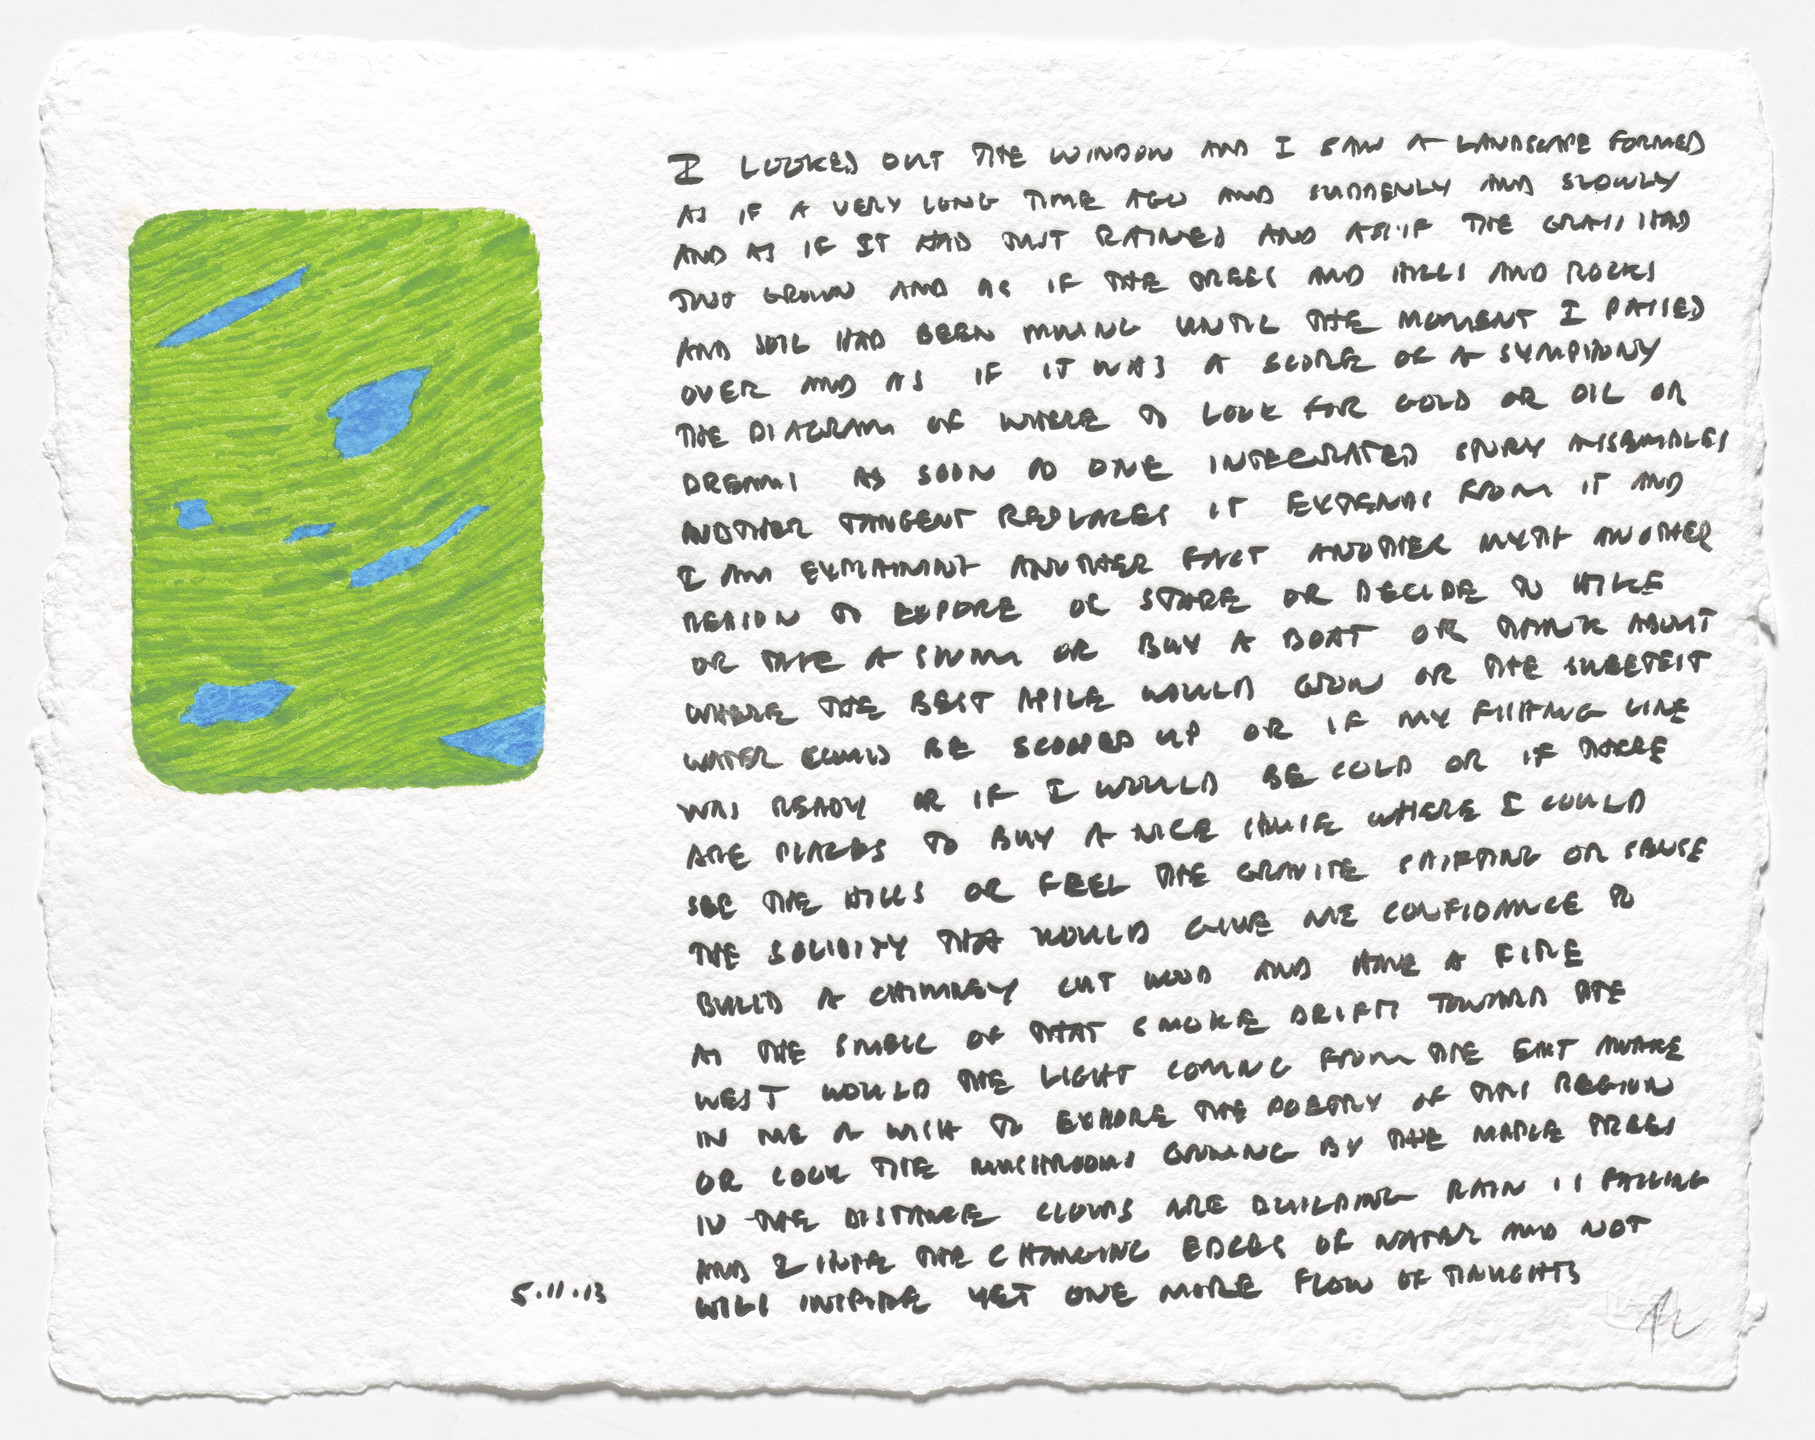 I LOOKED OUT THE WINDOW AND I SAW A LANDSCAPE FORMED
AS IF A VERY LONG TIME AGO AND SUDDENLY AND SLOWLY
AND AS IF IT HAD JUST RAINED AND AS IF THE GRASS HAD
JUST GROWN AND AS IF THE TREES AND HILLS AND ROCKS
AND SOIL HAD BEEN MOVING UNTIL THE MOMENT I PASSED
OVER AND AS IF IT WAS A SCORE OF A SYMPHONY
THE DIAGRAM OF WHERE TO LOOK FOR GOLD OR OIL OR
DREAMS AS SOON AS ONE INTEGRATED STORY ASSEMBLES
ANOTHER TANGENT REPLACES IT EXTENDS FROM IT AND
I AM EXPLAINING ANOTHER FACT ANOTHER MYTH ANOTHER
REASON TO EXPORE OR STARE OR DECIDE TO HIKE
OR TAKE A SWIM OR BUY A BOAT OR THINK ABOUT
WHERE THE BEST APPLE WOULD GROW OR THE SWEETEST
WATER COULD BE SCOOPED UP OR IF MY FISHING LINE
WAS READY OR IF I WOULD BE COLD OR IF THERE
ARE PLACES TO BUY A NICE HOUSE WHERE I COULD
SEE THE HILLS OR FEEL THE GRAVITE SHIFTING OR SENSE
THE SOLIDITY THAT WOULD GIVE ME CONFIDANCE TO
BUILD A CHIMNEY CUT WOOD AND HAVE A FIRE
AS THE SMELL OF THAT SMOKE DRIFTS TOWARD THE
WEST WOULD THE LIGHT COMING FROM THE EAST AWAKE
IN ME A WISH TO EXPORE THE POETRY OF THIS REGION
OR COOK THE MUSHROOMS GROWING BY THE MAPLE TREES
IN THE DISTANCE CLOUDS ARE BUILDING RAIN IS FALLING
AND I HOPE THE CHANGING EDGES OF WATER AND NOT
WILL INSPIRE YET ONE MORE FLOW OF THOUGHTS
5.11.13